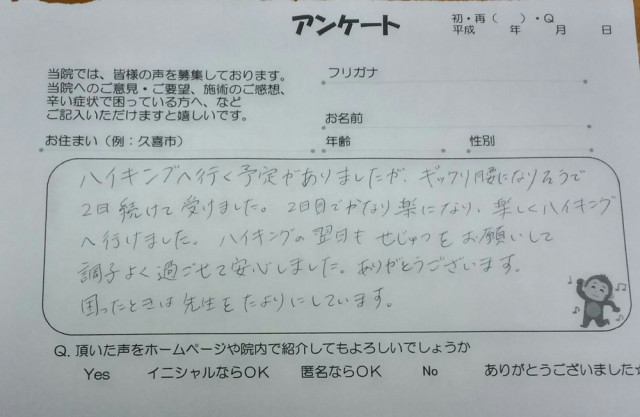 アンケート
初・再（　　）・Q
平成　　年　　月　　日
当院では、皆様の声を募集しております。
当院へのご意見・ご要望、施術のご感想、
辛い症状で困っている方へ、など
ご記入いただけますと嬉しいです。
フリガナ
お名前
お住まい（例：久喜市）
年齢
性別
ハイキングへ行く予定がありましたが、ギックリ腰になりそうで
2日続けて受けました。2日目でかなり楽になり、楽しくハイキング
へ行けました。ハイキングの翌日もせじゅつをお願いして
調子よく過ごせて安心しました。ありがとうございます。
困ったときは先生をたよりにしています。
Q. 頂いた声をホームページや院内で紹介してもよろしいでしょうか
Yes　イニシャルならOK　匿名ならOK　No　ありがとうございました☆